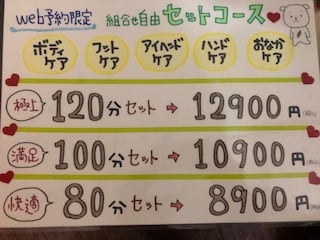 web予約限定 組合せ自由 セットコース
ボディケア フットケア アイヘッドケア ハンドケア おなかケア
極上 120分セット → 12900円(税込)
満足 100分セット → 10900円(税込)
快適 80分セット → 8900円